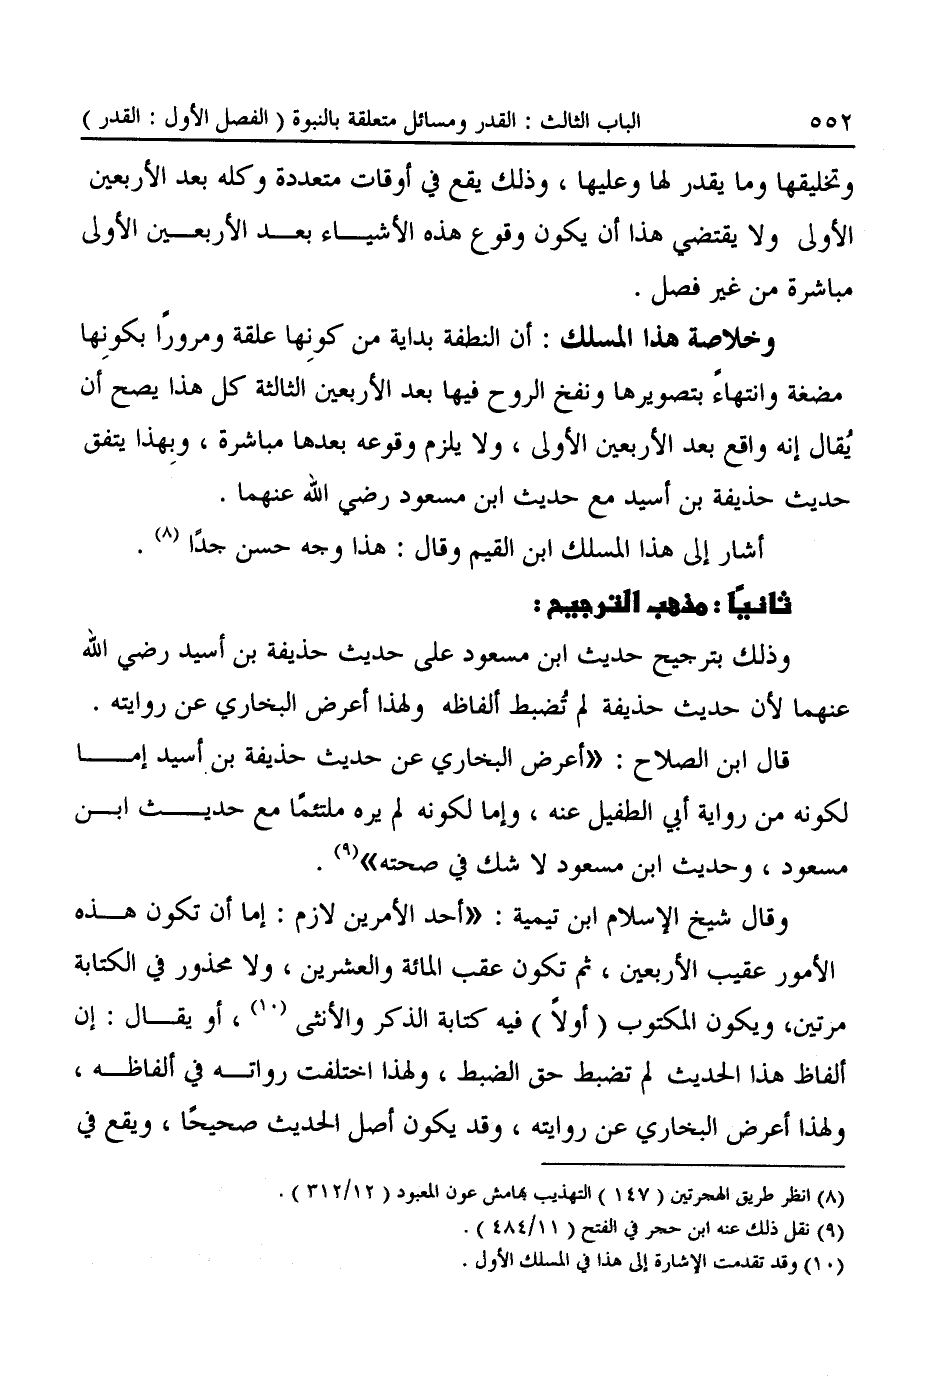 ٥٥٢ الباب الثالث : القدر ومسائل متعلقة بالنبوة ( الفصل الأول : القدر )
وتخليقها وما يقدر لها وعليها ، وذلك يقع في أوقات متعددة وكله بعد الأربعين
الأولى ولا يقتضي هذا أن يكون وقوع هذه الأشياء بعد الأربعين الأولى
مباشرة من غير فصل .
وخلاصة هذا المسلك : أن النطفة بداية من كونها علقة ومرورًا بكونها
مضغة وانتهاءً بتصويرها ونفخ الروح فيها بعد الأربعين الثالثة كل هذا يصح أن
يُقال إنه واقع بعد الأربعين الأولى ، ولا يلزم وقوعه بعدها مباشرة ، وبهذا يتفق
حديث حذيفة بن أسيد مع حديث ابن مسعود رضي الله عنهما .
أشار إلى هذا المسلك ابن القيم وقال : هذا وجه حسن جدًا (٨) .
ثانيًا : مذهب الترجيح :
وذلك بترجيح حديث ابن مسعود على حديث حذيفة بن أسيد رضي الله
عنهما لأن حديث حذيفة لم تُضبط ألفاظه ولهذا أعرض البخاري عن روايته .
قال ابن الصلاح : «أعرض البخاري عن حديث حذيفة بن أسيد إما
لكونه من رواية أبي الطفيل عنه ، وإما لكونه لم يره ملتئمًا مع حديث ابن
مسعود ، وحديث ابن مسعود لا شك في صحته»(٩) .
وقال شيخ الإسلام ابن تيمية : «أحد الأمرين لازم : إما أن تكون هذه
الأمور عقيب الأربعين ، ثم تكون عقب المائة والعشرين ، ولا محذور في الكتابة
مرتين، ويكون المكتوب ( أولاً ) فيه كتابة الذكر والأنثى (١٠) ، أو يقال : إن
ألفاظ هذا الحديث لم تضبط حق الضبط ، ولهذا اختلفت رواته في ألفاظه ،
ولهذا أعرض البخاري عن روايته ، وقد يكون أصل الحديث صحيحًا ، ويقع في
(٨) انظر طريق الهجرتين ( ١٤٧ ) التهذيب بهامش عون المعبود ( ٣١٢/١٢ ) .
(٩) نقل ذلك عنه ابن حجر في الفتح ( ٤٨٤/١١ ) .
(١٠) وقد تقدمت الإشارة إلى هذا في المسلك الأول .